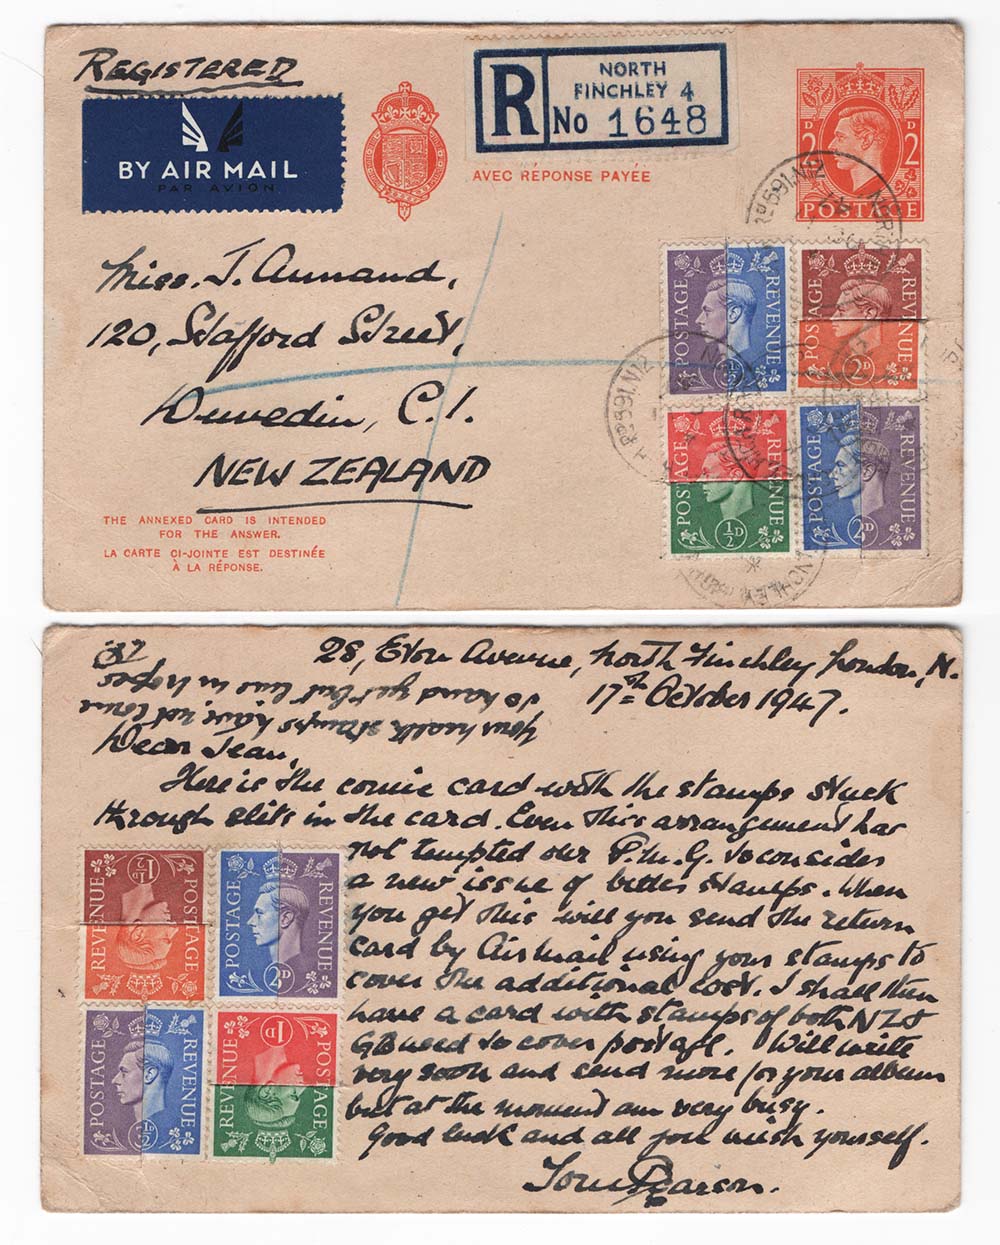 REGISTERED
BY AIR MAIL
PAR AVION
R
NORTH
FINCHLEY 4
No 1648
AVEC RÉPONSE PAYÉE
2D 2D
POSTAGE
Miss. J. Aunand,
120, Stafford Street,
Dunedin, C.1.
NEW ZEALAND
THE ANNEXED CARD IS INTENDED
FOR THE ANSWER.
LA CARTE CI-JOINTE EST DESTINÉE
À LA RÉPONSE.
POSTAGE REVENUE
POSTAGE REVENUE
POSTAGE REVENUE ½D
POSTAGE REVENUE 2D
28, Eton Avenue, North Finchley London, N.
17th October 1947.
Your health stamps have not come
to hand yet but live in hopes
Dear Jean,
Here is the comic card with the stamps stuck
through slits in the card. Even this arrangement has
not tempted our P.M.G. to consider
a new issue of better stamps. When
you get this will you send the return
card by Airmail using your stamps to
cover the additional cost. I shall then
have a card with stamps of both NZ &
GB used to cover postage. Will write
very soon and send more for your album
but at the moment am very busy.
Good luck and all you wish yourself.
Tom Pearson.
POSTAGE REVENUE 1½D
POSTAGE REVENUE 2D
POSTAGE REVENUE
POSTAGE REVENUE 1D